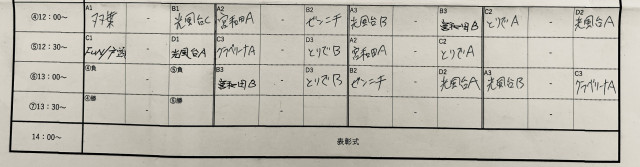 ④12:00～ A1 双葉 - B1 光風台C A2 宮和田A - B2 ゼンニチ A3 光風台B - B3 宮和田B C2 とりでA - D2 光風台A
⑤12:30～ C1 - D1 光風台A C3 クラベリーナA - D3 とりでB A2 宮和田A - C2 とりでA -
⑥13:00～ ④負 - ⑤負 B3 宮和田B - D3 とりでB B2 ゼンニチ - D2 光風台A A3 光風台B - C3 クラベリーナA
⑦13:30～ ④勝 - ⑤勝 - - -
14:00～ 表彰式